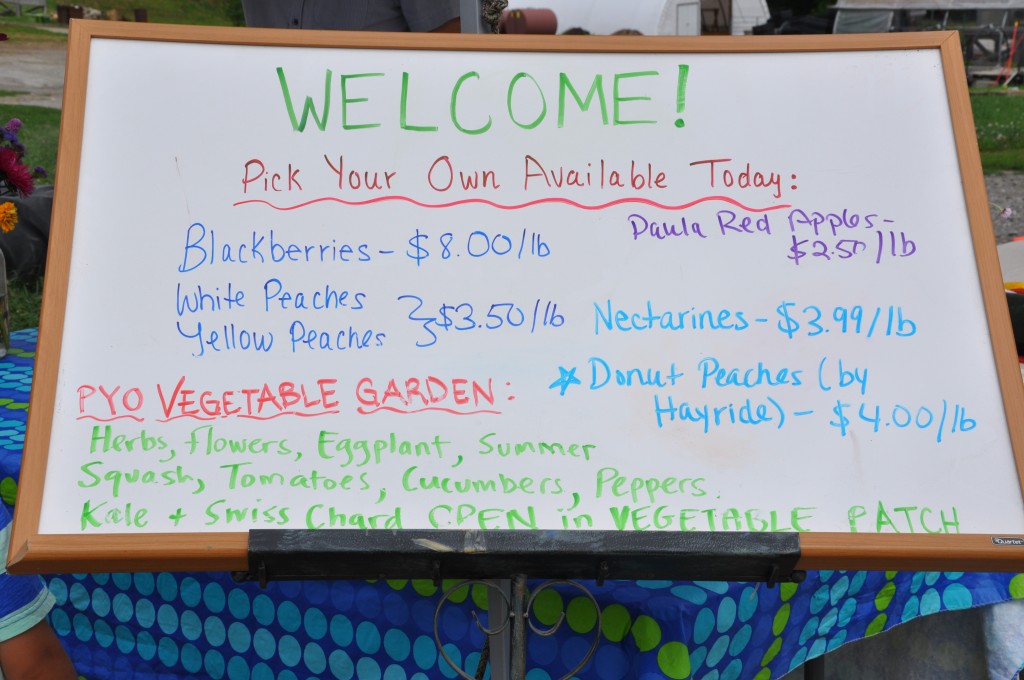 WELCOME!
Pick Your Own Available Today:
Blackberries - $8.00/lb
White Peaches
Yellow Peaches
$3.50/lb
Paula Red Apples-
$2.50/lb
Nectarines - $3.99/lb
Donut Peaches (by
Hayride) - $4.00/lb
PYO VEGETABLE GARDEN:
Herbs, flowers, Eggplant, Summer
Squash, Tomatoes, Cucumbers, Peppers.
Kale + Swiss Chard OPEN in VEGETABLE PATCH
Quartet